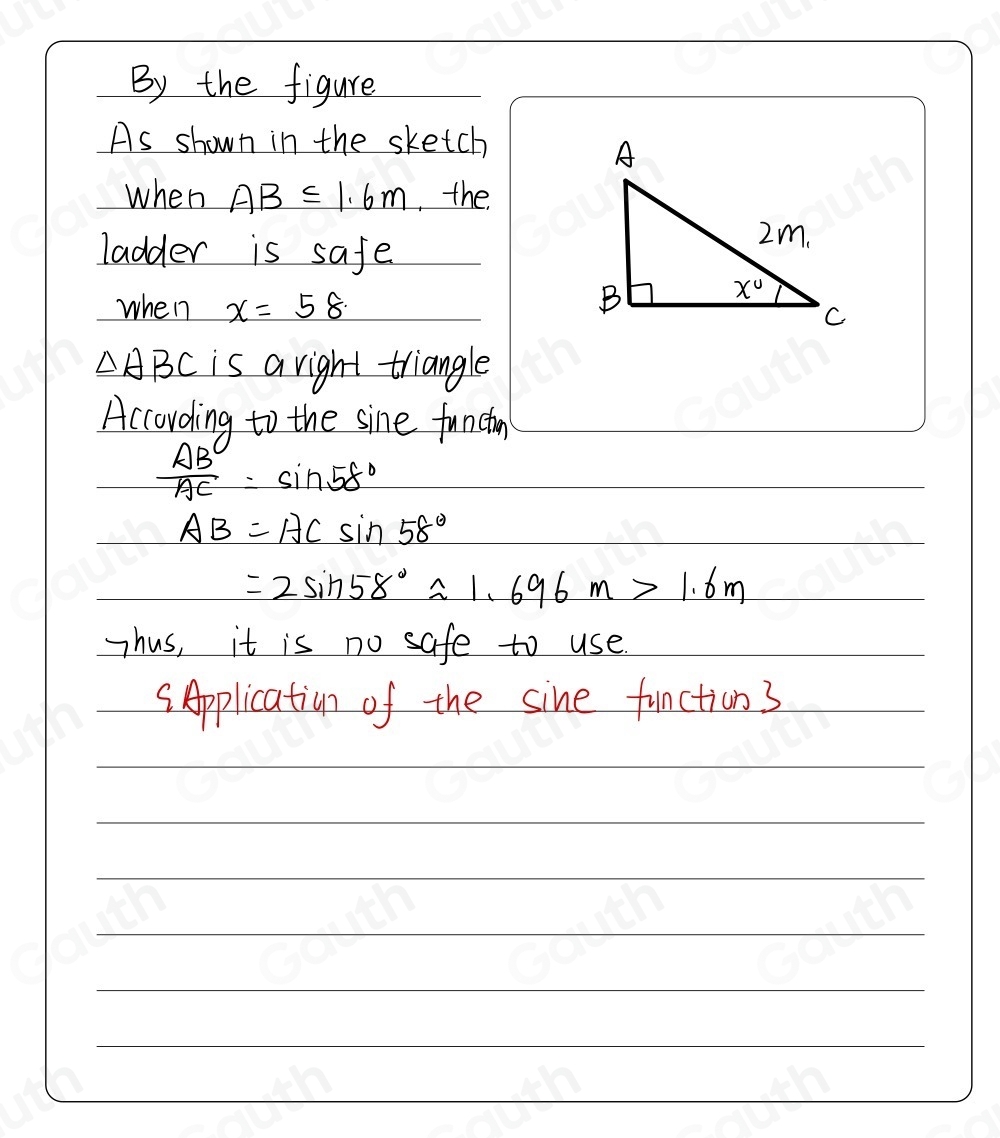 By the figure
As shown in the sketch
when AB ≤ 1.6m. the
ladder is safe
when x = 58.
△ABC is a right triangle
According to the sine function
AB/AC = sin58°
AB = AC sin 58°
= 2 sin58° ≈ 1.696 m > 1.6m
Thus, it is no safe to use.
{Application of the sine function}
A
2m.
B
x°
C
Gauth